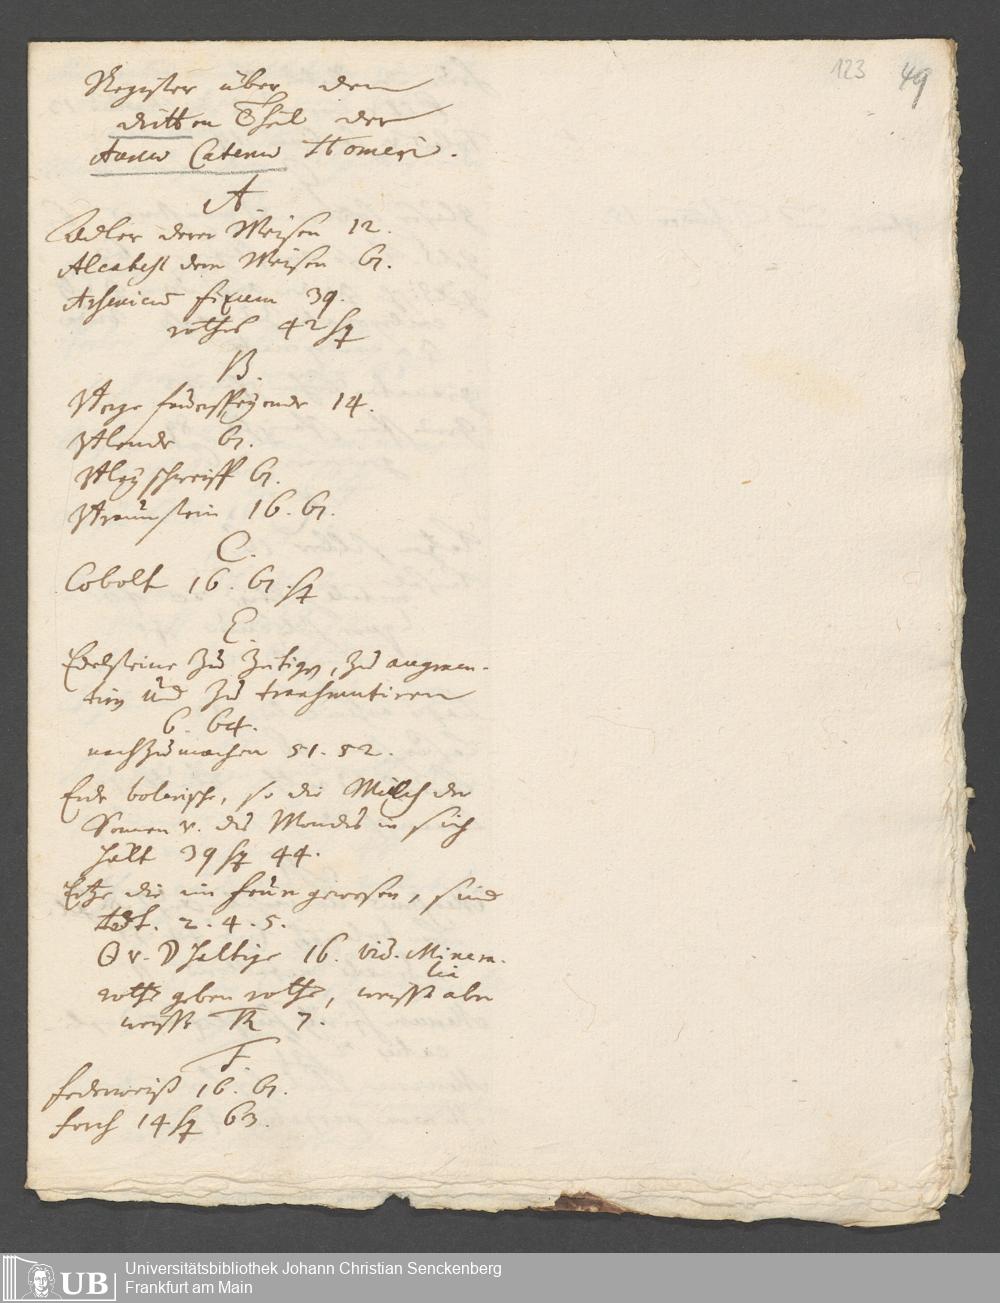 123 49
Register über den
dritten Theil der
Aureae Catenae Homeri.
A.
Adler derer Weisen 12.
Alcahest dem Weisen 61.
Arsenicum fixum 39.
rothes 42 sq
B.
Berge feuerspeyende 14.
Blende 61.
Bley schweiff 61.
Braunstein 16. 61.
C.
Cobolt 16. 61. sq
E.
Edelsteine zu zeitigen, zu augmen-
tiren und zu transmutiren
6. 64.
nachzumachen 51. 52.
Erde bolarische, so die Milch der
Sonnen u. des Mondes in sich
hält 39 sq 44.
Ertze die im feuer gewesen, sind
todt. 2. 4. 5.
☉ u. ☽ haltige 16. vid. Minera-
lia
rothe geben rothe, weisse aber
weisse 7.
F.
Federweiß 16. 61.
forch 14 sq 63.
Universitätsbibliothek Johann Christian Senckenberg
UB Frankfurt am Main